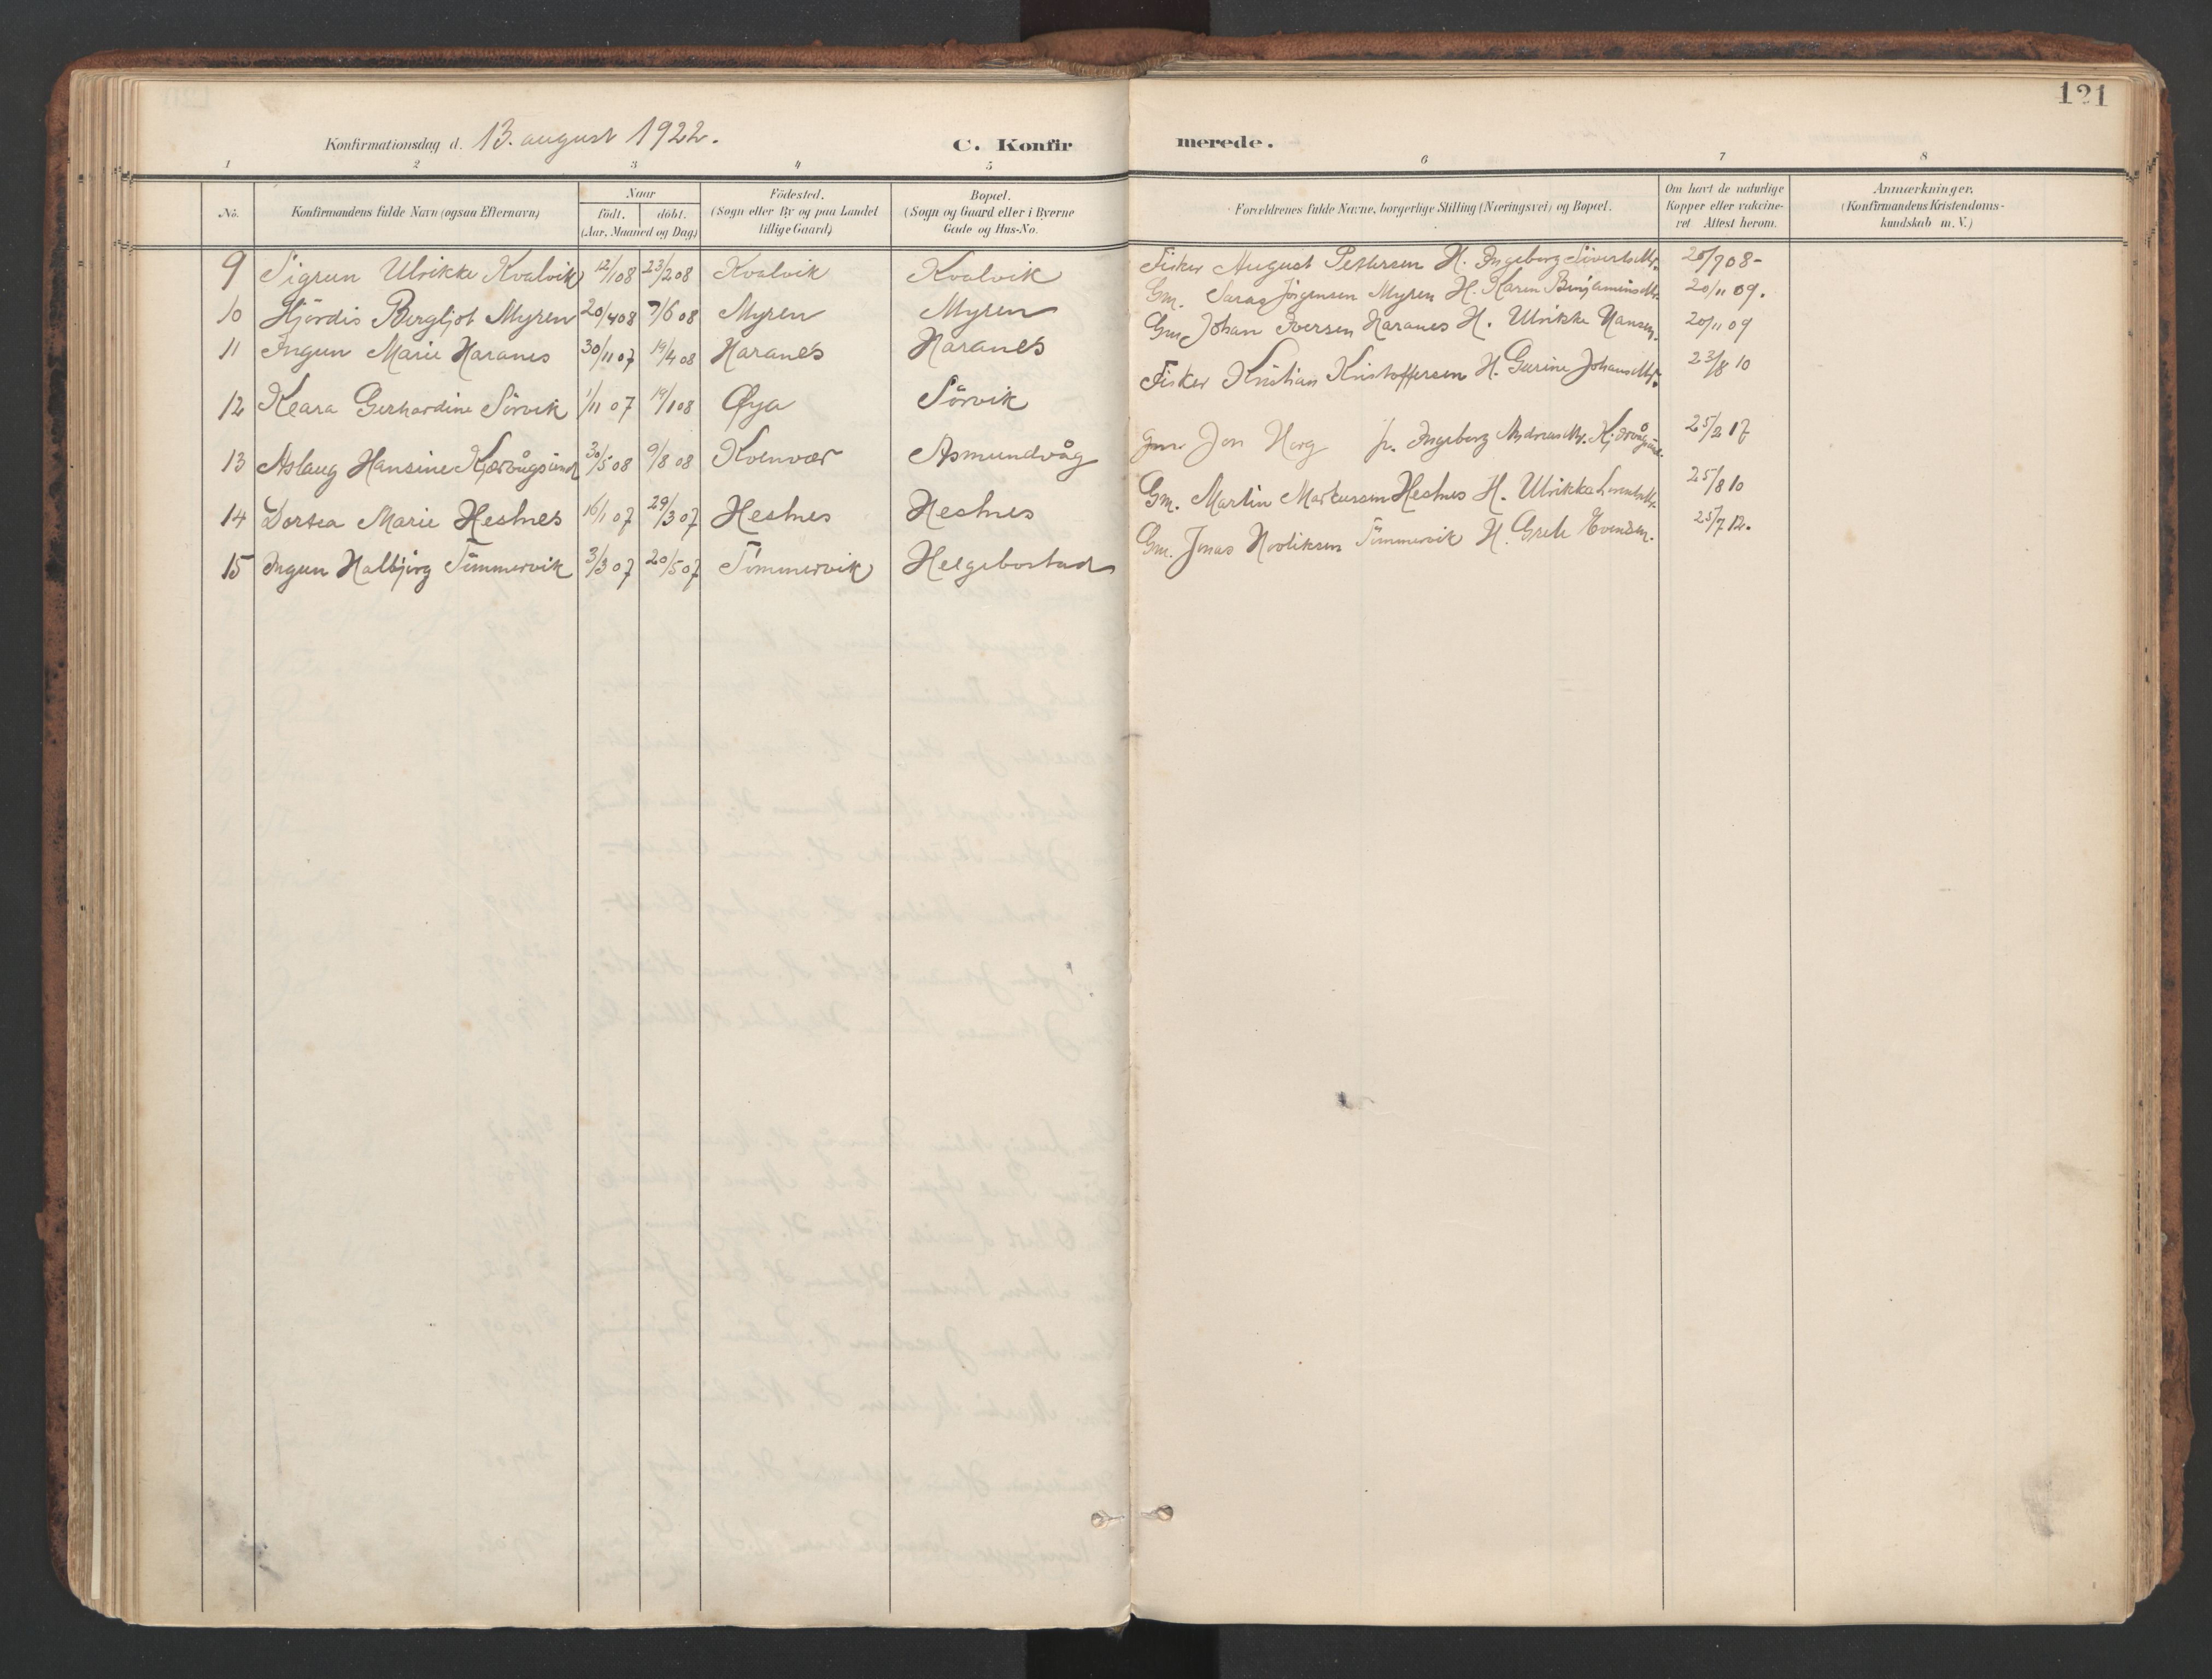 121
Konfirmationsdag d. 13. august 1922.
C. Konfirmerede.
1 2 3 4 5 6 7 8
No.
Konfirmandens fulde Navn (ogsaa Efternavn)
Naar
født. döbt.
(Aar, Maaned og Dag)
Födested.
(Sogn eller By og paa Landet
tillige Gaard)
Bopæl.
(Sogn og Gaard eller i Byerne
Gade og Hus-No.
Forældrenes fulde Navne, borgerlige Stilling (Næringsvei) og Bopæl.
Om havt de naturlige
Kopper eller vakcine-
ret Attest herom.
Anmærkninger.
(Konfirmandens Kristendoms-
kundskab m. V.)
9 Sigrun Ulrikke Kvalvik 12/1 08 23/2 08 Kvalvik Kvalvik Fisker August Pettersen H. Ingeborg Sivertsdtr. 20/7 08-
10 Hjördis Bergljot Myren 20/4 08 7/6 08 Myren Myren Gm. Jörgensen Myren H. Karen Benjaminsdtr. 20/11 09.
11 Ingun Marie Haranes 30/11 07 19/4 08 Haranes Haranes Gm. Johan Iversen Haranes H. Ulrikke Hansen. 20/11 09
12 Klara Gerhardine Sörvik 1/11 07 19/1 08 Øya Sörvik Fisker Kristian Kristoffersen H. Gurine Johansdtr. 23/8 10
13 Aslaug Hansine Kjærvågsund 30/5 08 9/8 08 Kvenvær Asmundvåg Gm. Jon Horg fr. Ingeborg Andreasdtr. 25/2 17
14 Dortea Marie Hestnes 16/1 07 29/3 07 Hestnes Hestnes Gm. Martin Markussen Hestnes H. Ulrikka 25/8 10
15 Ingun Halbjörg Tömmervik 3/3 07 20/5 07 Tömmervik Helgebostad Gm. Jonas Tömmervik H. Grete Evensen. 25/7 12.